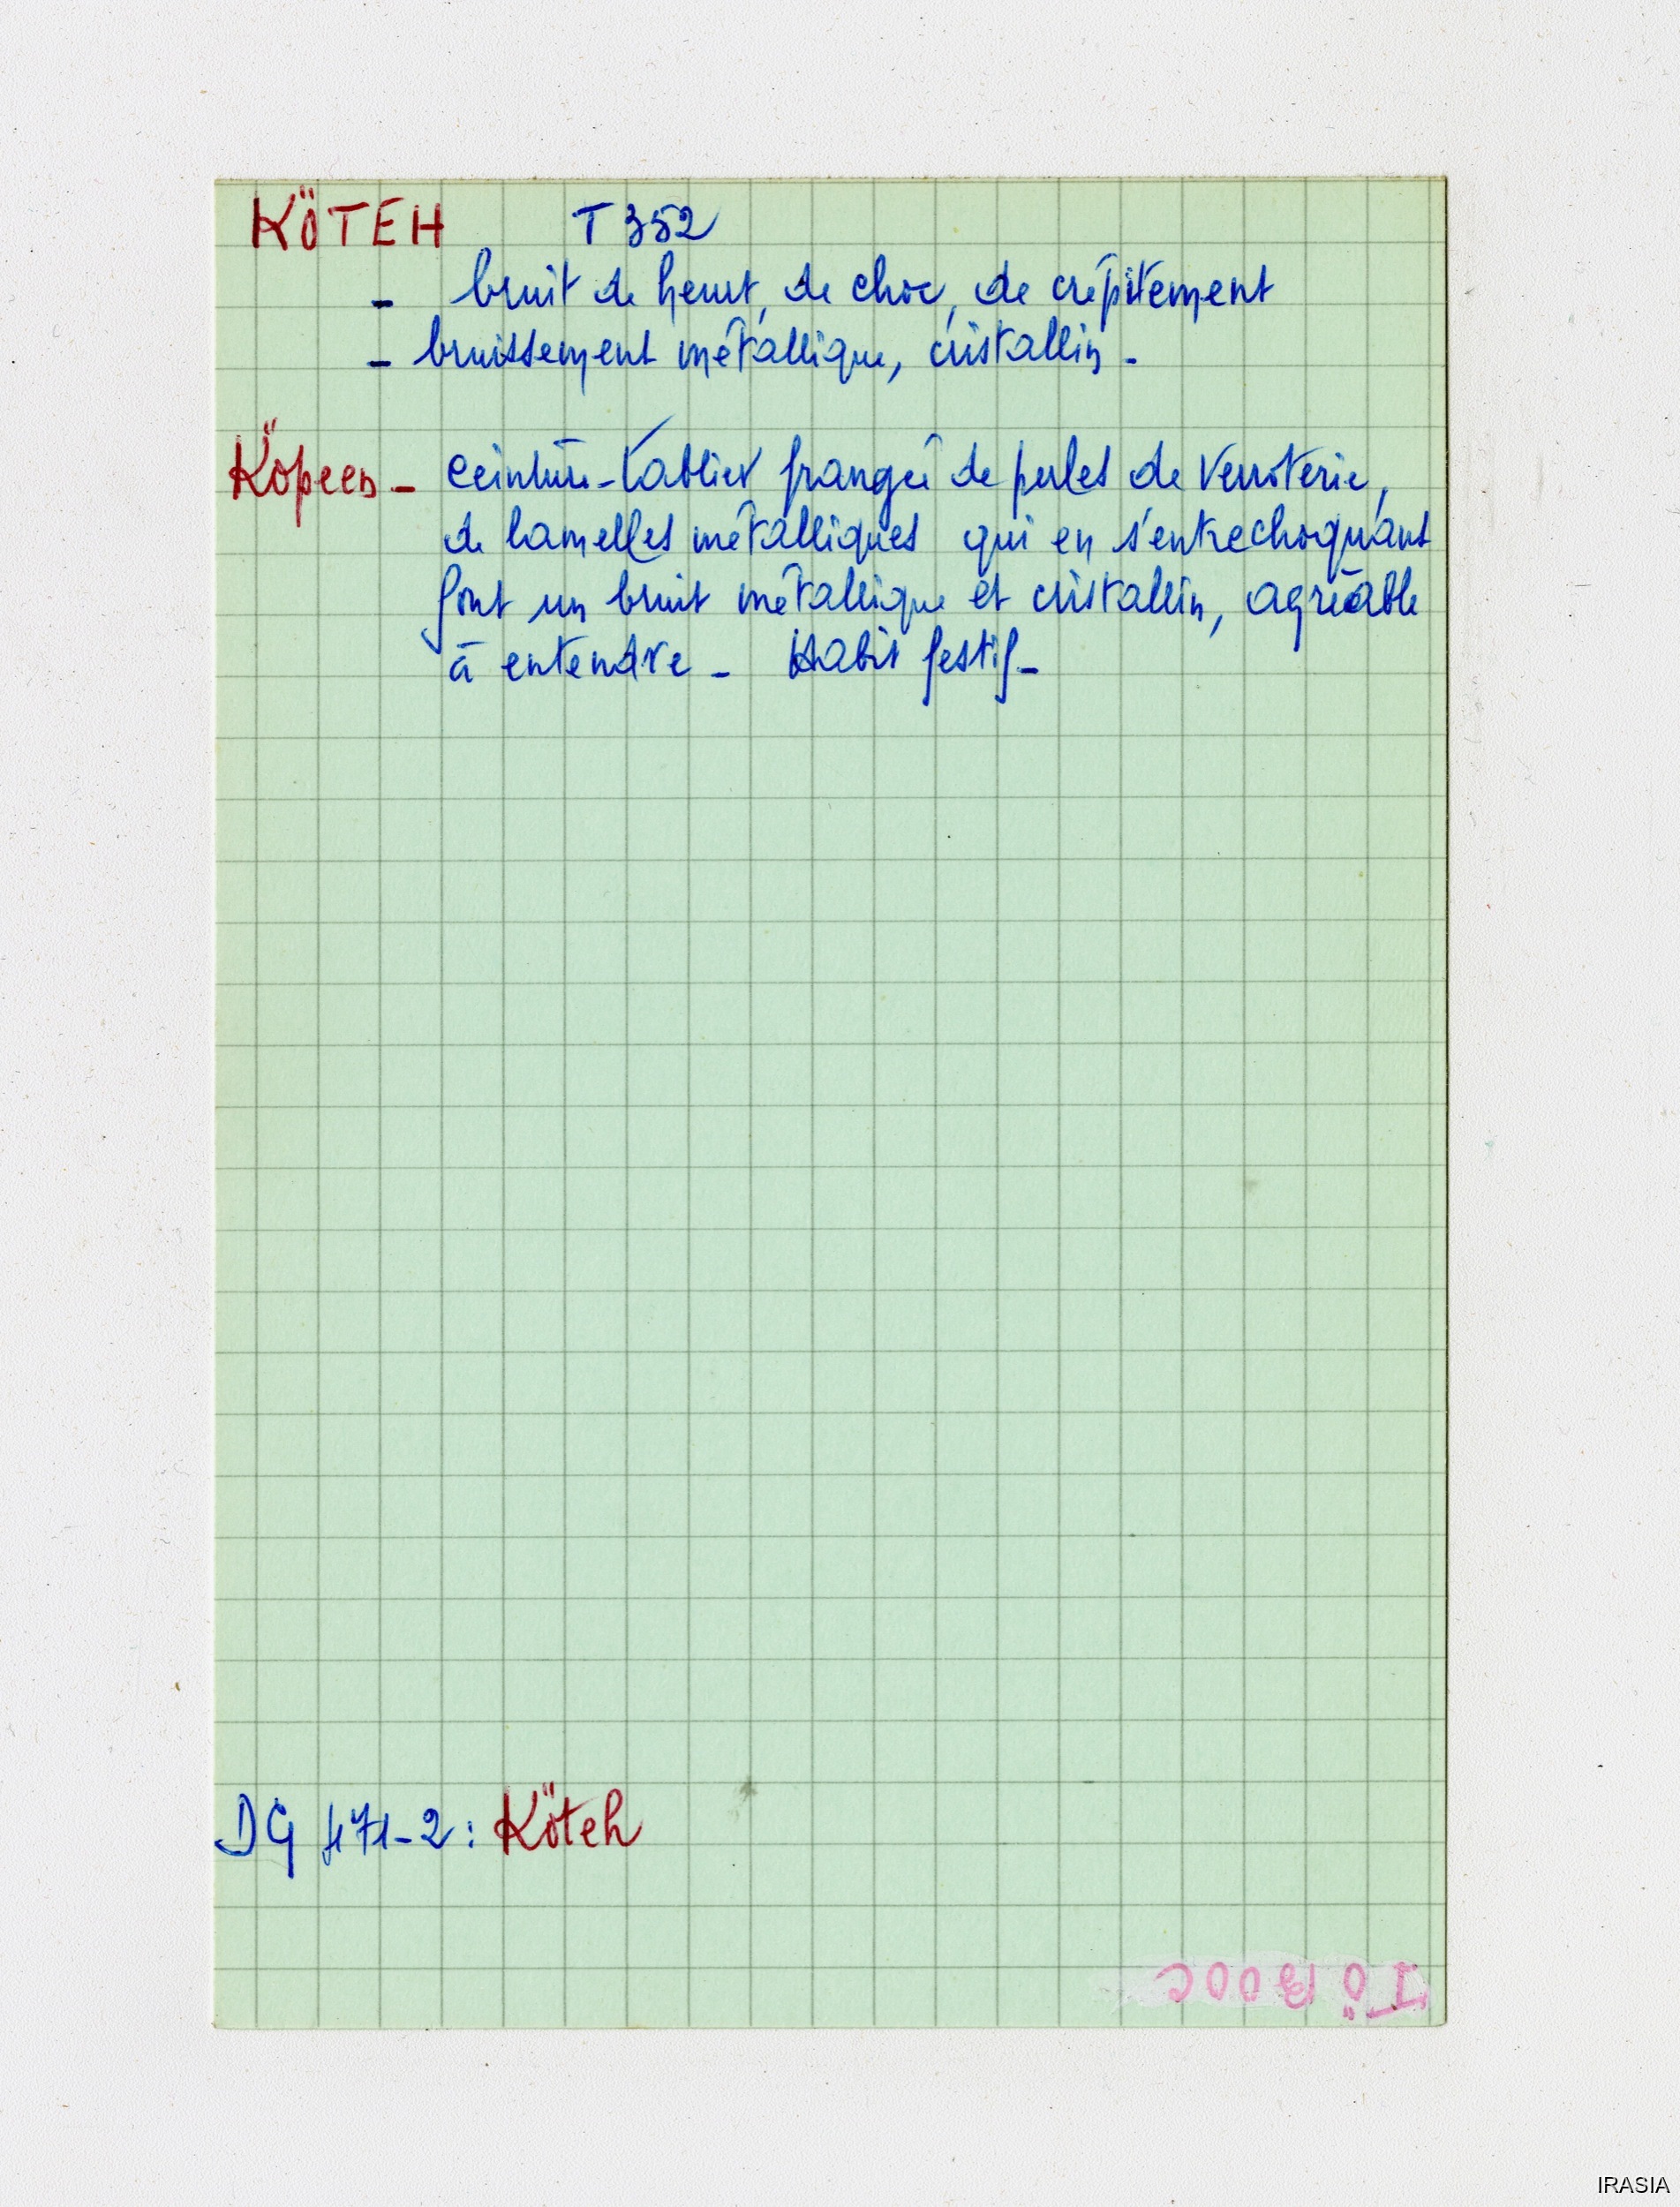 KÖTEH T 352
- bruit de heurt, de choc, de crépitement
- bruissement métallique, cristallin -
Köpeen - ceinture-tablier frangée de perles de verroterie,
de lamelles métalliques qui en s'entrechoquant
font un bruit métallique et cristallin, agréable
à entendre - Habit festif -
DG 471-2 : Köteh
TÖBOOC
IRASIA